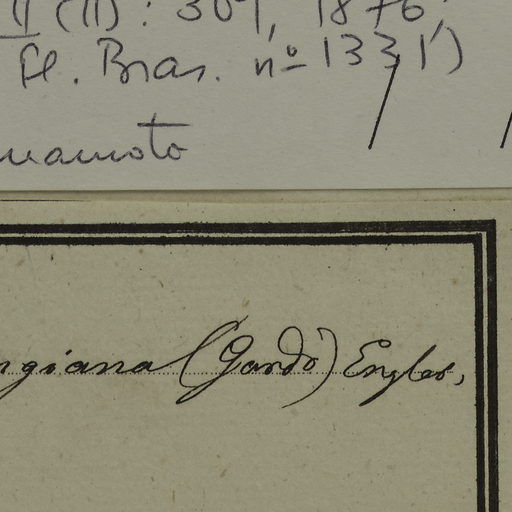 II (II): 309, 1876
Fl. Bras. nº 1331)
uamoto
ngiana (Gardn) Engler,